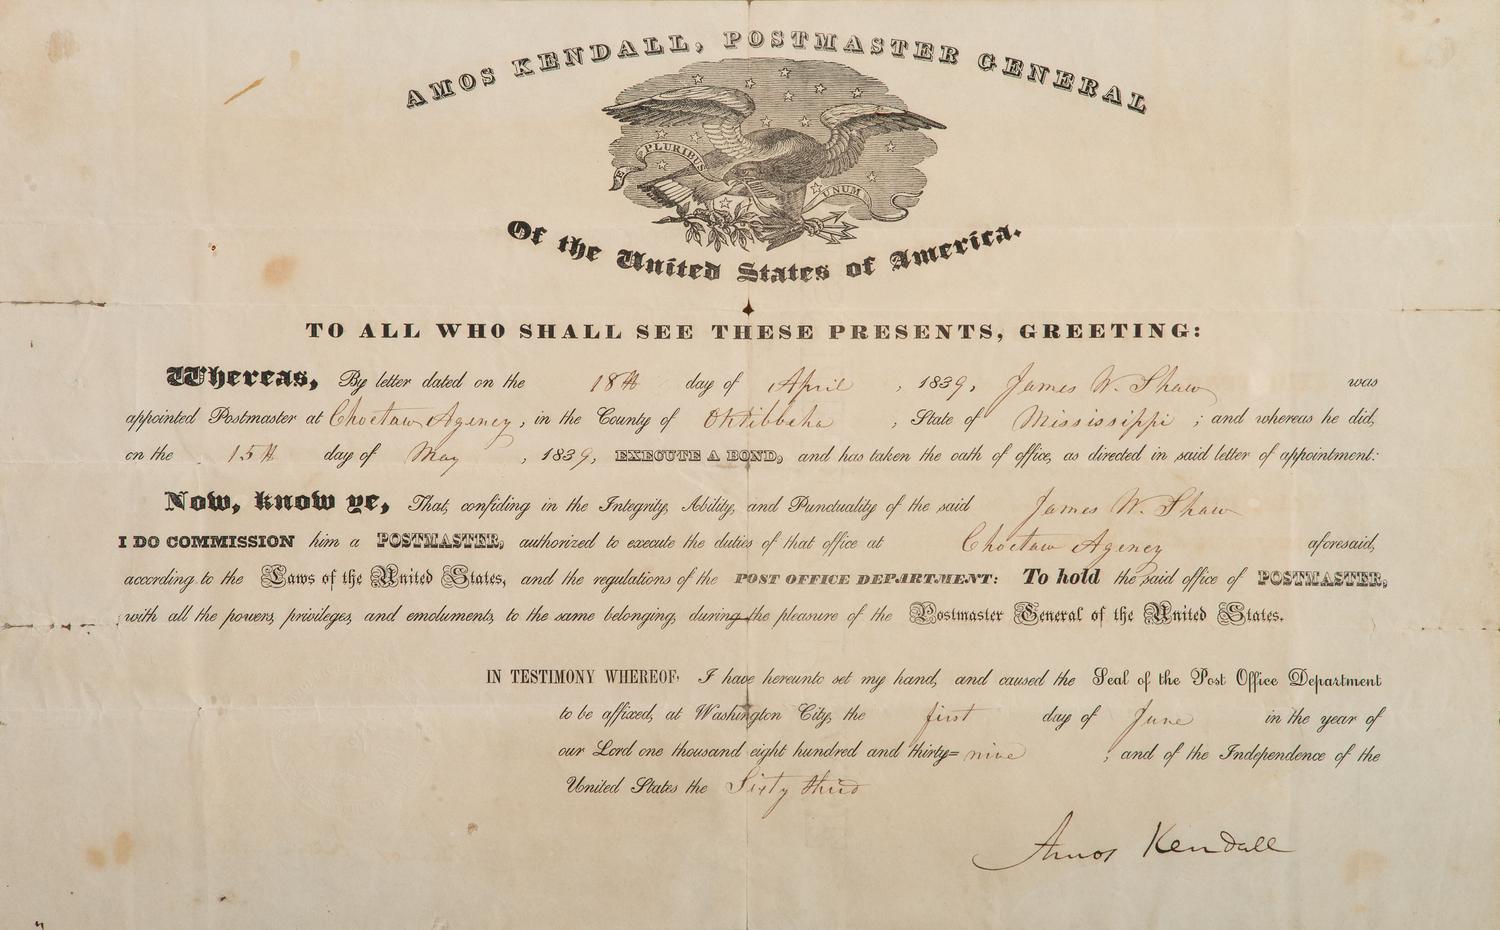 AMOS KENDALL, POSTMASTER GENERAL
E PLURIBUS UNUM
Of the United States of America.
TO ALL WHO SHALL SEE THESE PRESENTS, GREETING:
Whereas, By letter dated on the 18th day of April , 1839, James W. Shaw was
appointed Postmaster at Choctaw Agency, in the County of Oktibbeha , State of Mississippi ; and whereas he did,
on the 15th day of May , 1839, EXECUTE A BOND, and has taken the oath of office, as directed in said letter of appointment:
Now, know ye, That, confiding in the Integrity, Ability, and Punctuality of the said James W. Shaw
I DO COMMISSION him a POSTMASTER, authorized to execute the duties of that office at Choctaw Agency aforesaid,
according to the Laws of the United States, and the regulations of the POST OFFICE DEPARTMENT: To hold the said office of POSTMASTER,
with all the powers, privileges, and emoluments, to the same belonging, during the pleasure of the Postmaster General of the United States.
IN TESTIMONY WHEREOF, I have hereunto set my hand, and caused the Seal of the Post Office Department
to be affixed, at Washington City, the first day of June in the year of
our Lord one thousand eight hundred and thirty=nine ; and of the Independence of the
United States the Sixty third
Amos Kendall